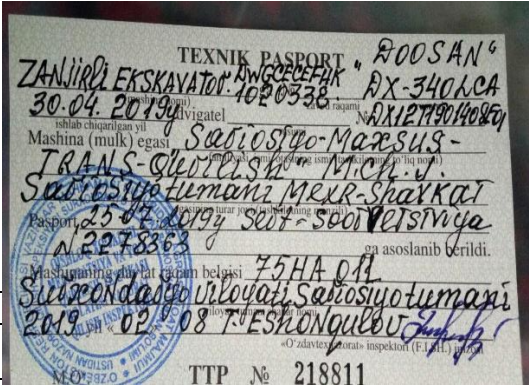 TEXNIK PASPORT "DOOSAN"
ZANJIRLI EKSKAVATOR. DWGCECEFHK DX-340LCA
1020338.
30.04.2019y dvigatel № DX12T1901408E01
ishlab chiqarilgan yil
Mashina (mulk) egasi Sariosiyo-Maxsus-
TRANS-Qurilish" M.Ch.J.
Sariosiyo tumani Mexr-Shavkat
Pasport 25.07.2019y Sert-Sootvetstviya
N.2278363 ga asoslanib berildi.
Mashinaning davlat raqam belgisi 75HA 011
Surxondaryo viloyati Sariosiyo tumani
2019 yil "02" 08 T. ESHONQULOV
«O'zdavtexnazorat» inspektori (F.I.SH.) imzosi
M.O'. TTP № 218811